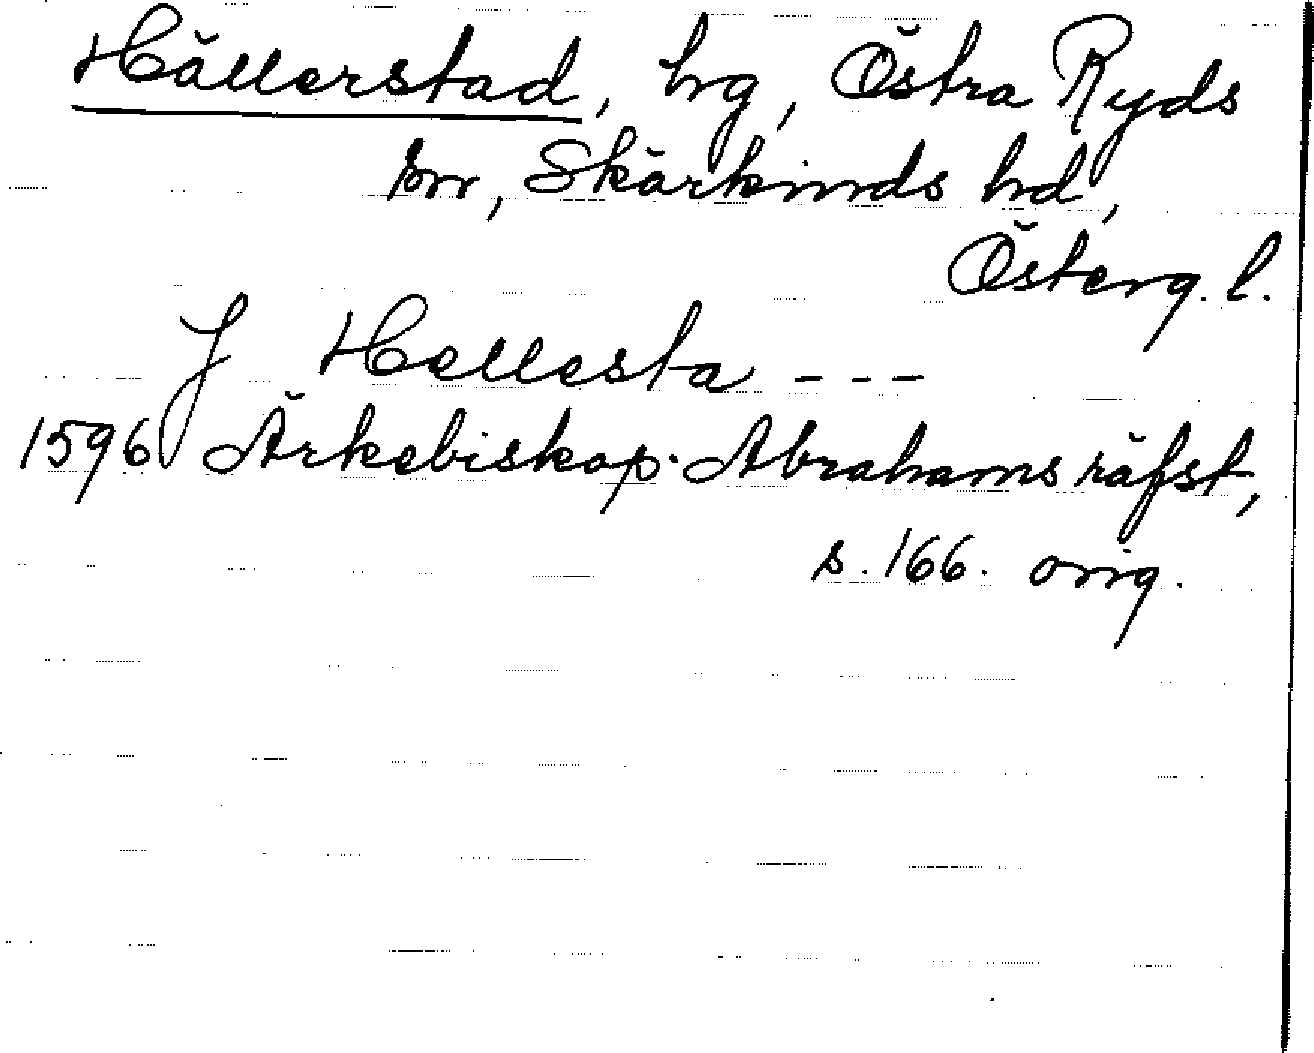 Hällerstad, hg, Östra Ryds
sn, Skärkinds hd,
Österg. l.
J Hellesta - - -
1596 Ärkebiskop Abrahams räfst,
s. 166. orig.